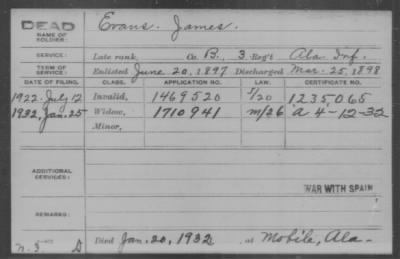 DEAD
NAME OF SOLDIER:
Evans. James.
SERVICE:
Late rank, Co. B, 3 Reg't Ala Inf.
TERM OF SERVICE:
Enlisted June 20, 1897 Discharged Mar. 25, 1898
DATE OF FILING. CLASS. APPLICATION NO. LAW. CERTIFICATE NO.
1922. July 12 Invalid, 1469520 5/20 1235065
1932, Jan. 25 Widow, 1710941 m/26 A 4-12-32
Minor,
ADDITIONAL SERVICES:
WAR WITH SPAIN
REMARKS:
Died Jan. 20, 1932 at Mobile, Ala-